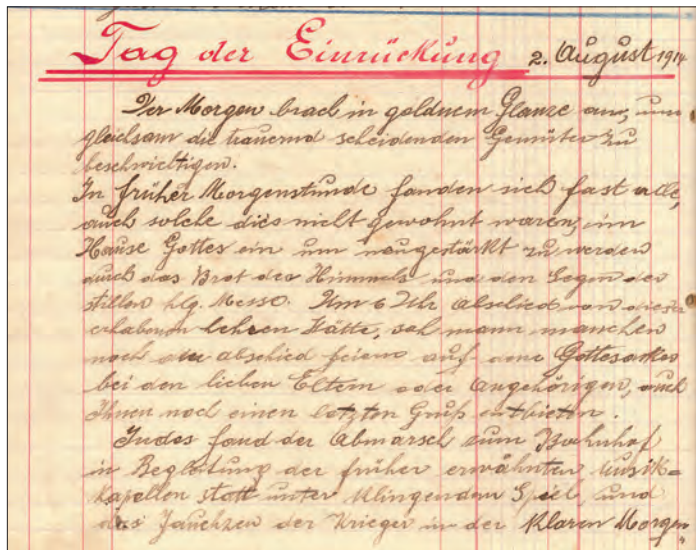 Tag der Einrückung 2. August 1914
Der Morgen brach in goldnem Glanze an, um
gleichsam die trauernd scheidenden Gemüter zu
beschwichtigen.
In früher Morgenstunde fanden sich fast alle,
auch solche dies nicht gewohnt waren, im
Hause Gottes ein um neugestärkt zu werden
durch das Brot des Himmels und den Segen der
stillen hlg. Messe. Um 6 Uhr Abschied von dieser
erhabenen Stätte, sah mann manchen
noch Abschied feiern auf dem Gottesacker
bei den lieben Eltern oder Angehörigen, auch
Ihnen noch einen letzten Gruß entbieten.
Indes fand der Abmarsch zum Bahnhof
in Begleitung der früher erwähnten Musik=
kapellen statt unter klingendem Spiel, und
das Jauchzen der Krieger in der klaren Morgen